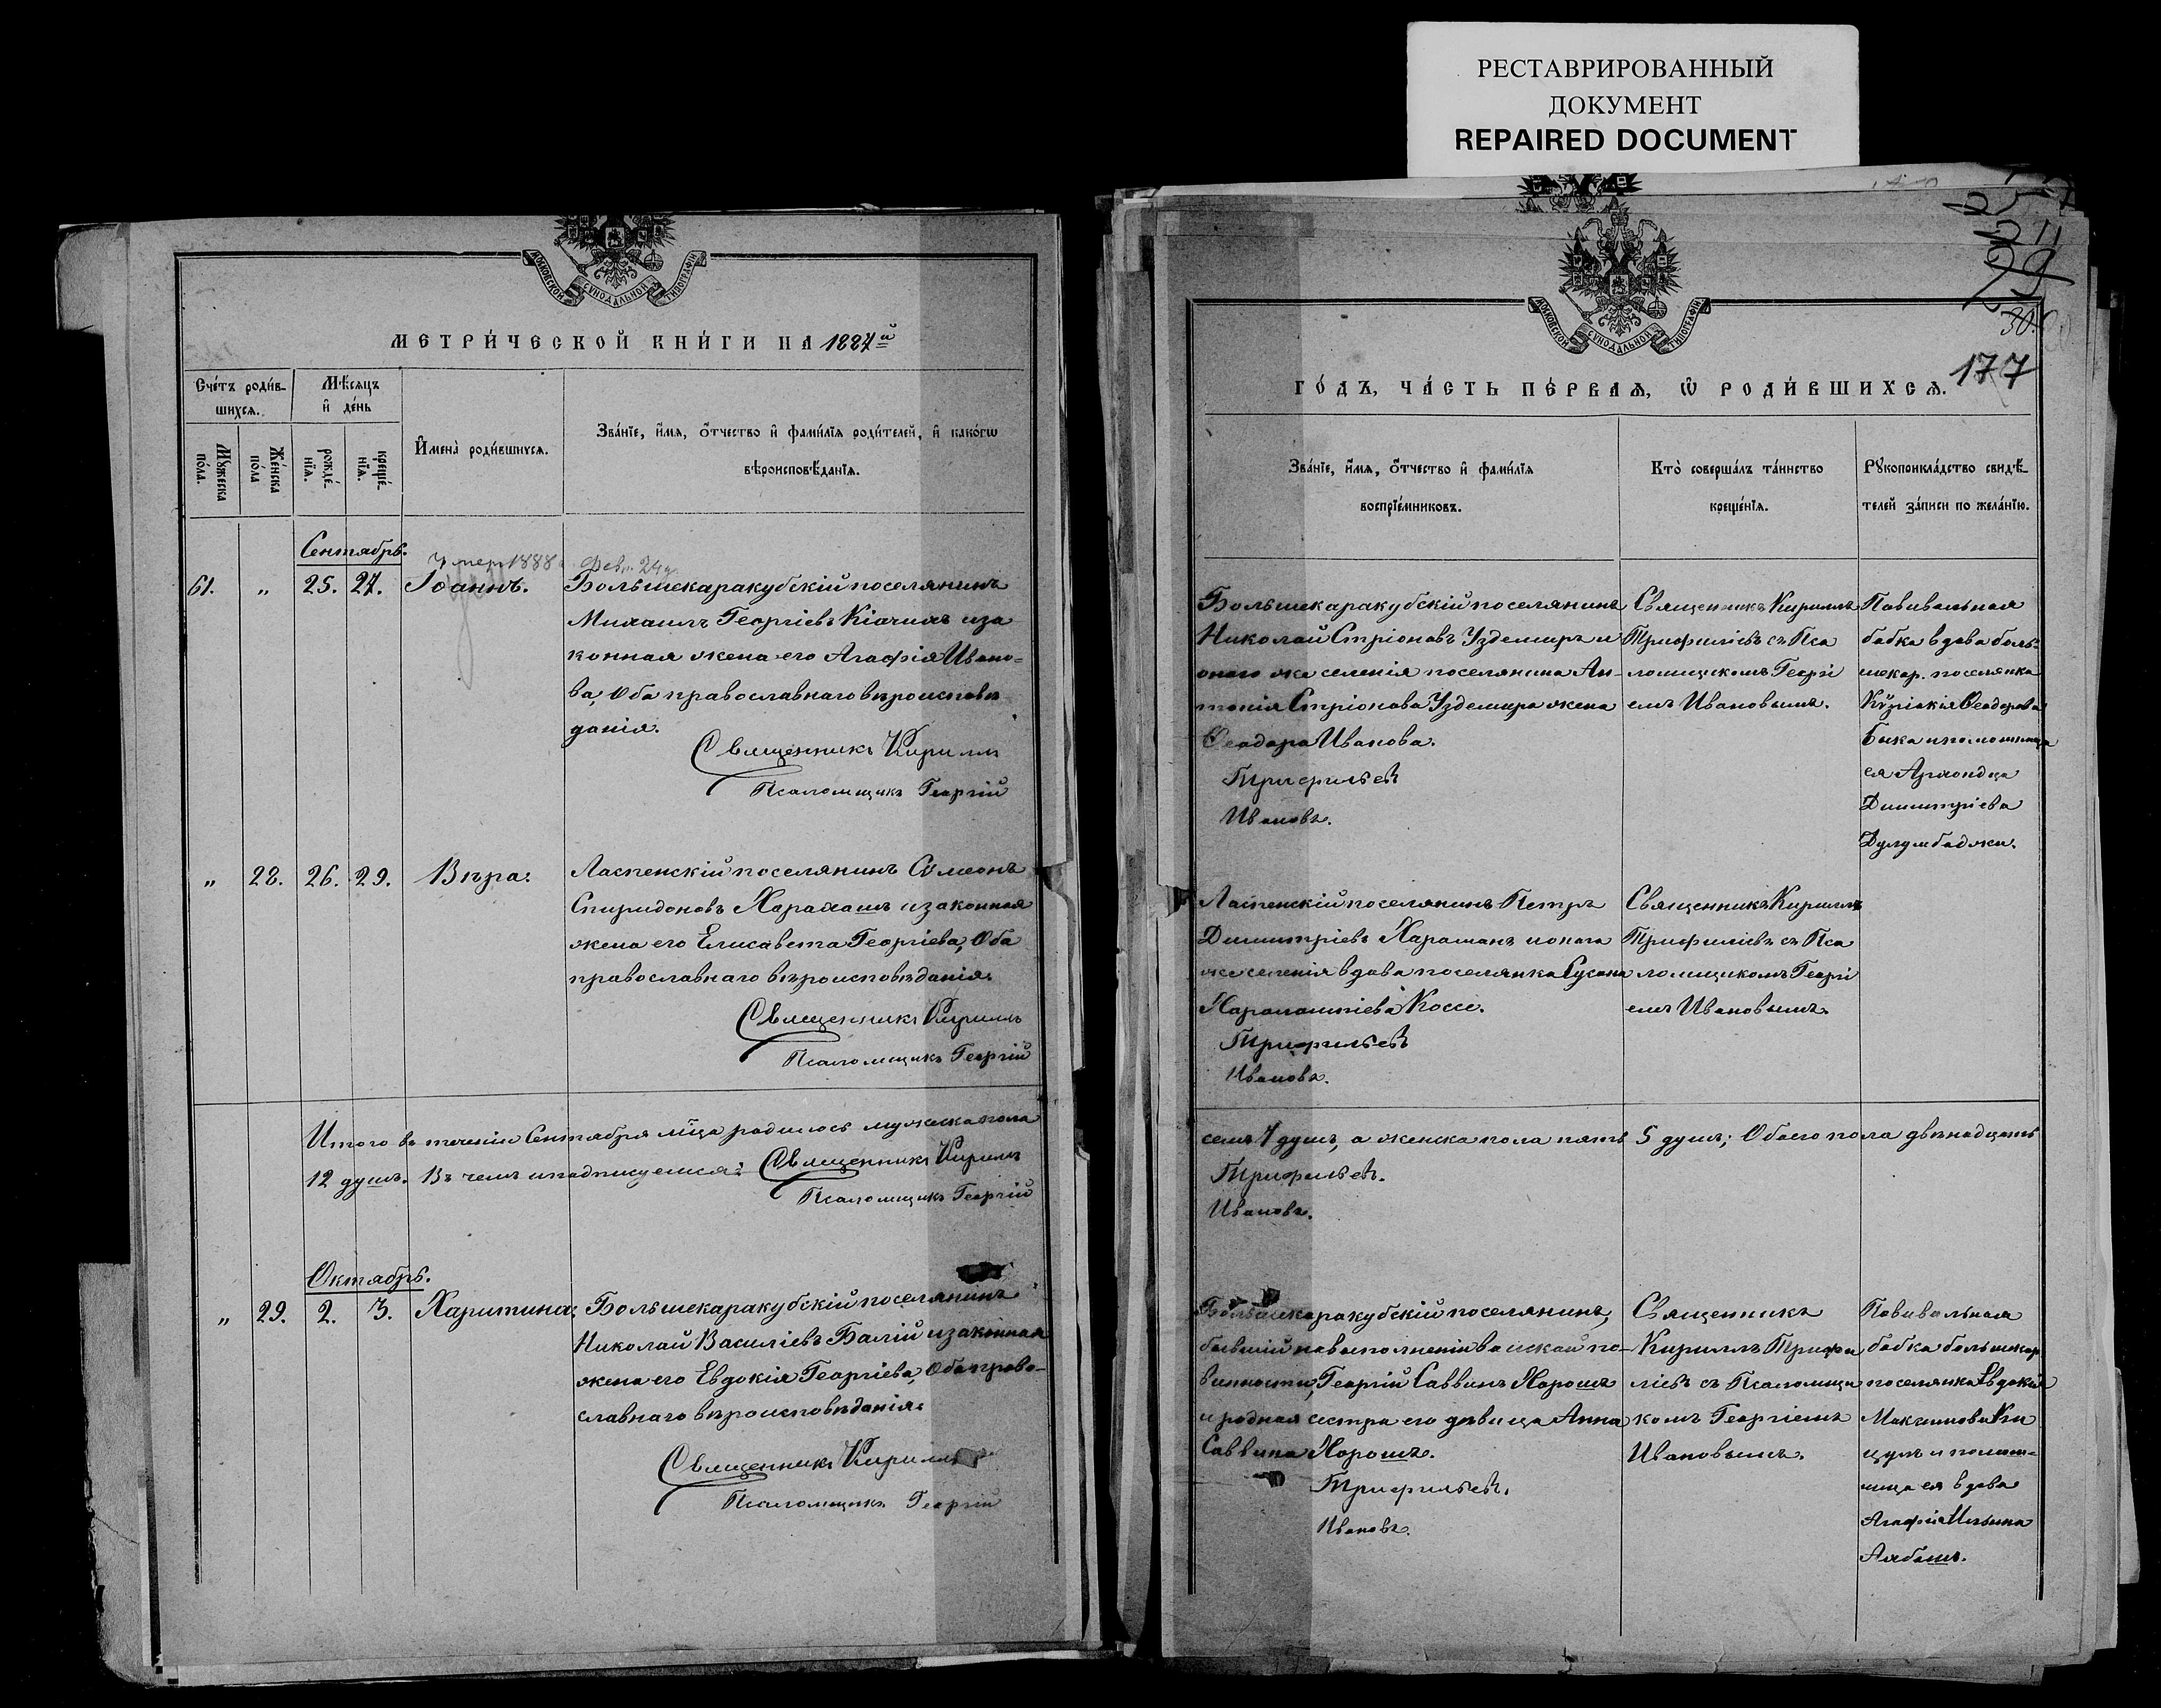 РЕСТАВРИРОВАННЫЙ
ДОКУМЕНТ
REPAIRED DOCUMENT
МОСКОВСКОЙ СѴНОДАЛЬНОЙ ТИПОГРАФІИ
МЕТРИ́ЧЕСКОЙ КНИ́ГИ НА 1887й
Сче́тъ роди́в-
шихсѧ.
Мѣ́сѧцъ
и҆ де́нь
Мꙋ́жеска
по́ла.
Же́нска
по́ла
рожде́-
нїѧ.
креще́-
нїѧ.
И҆мена̀ роди́вшихсѧ.
Зва́нїе, и҆́мѧ, ѻ҆́тчество и҆ фами́лїѧ роди́телей, и҆ како́гѡ
вѣроисповѣ́данїѧ.
Сентябрь.
Умер 1888 Фев. 24
61. „ 25. 27. Іоаннъ. Большекаракубскій поселянинъ
Михаилъ Георгіевъ Кіачихъ и за
конная жена его Агафія Ивано-
ва, Оба православнаго вѣроисповѣ-
данія.
Священникъ Кириллъ
Псаломщикъ Георгій
„ 28. 26. 29. Вѣра. Ласпенскій поселянинъ Сѵмеонъ
Спиридоновъ Харахашъ и законная
жена его Елисавета Георгіева, Оба
православнаго вѣроисповѣданія.
Священникъ Кириллъ
Псаломщикъ Георгій
Итого въ теченіи Сентября м͠ца родилось мужеска пола
12 душъ. Въ чемъ и подписуемся: Священникъ Кириллъ
Псаломщикъ Георгій
Октябрь.
„ 29. 2. 3. Харитина. Большекаракубскій поселянинъ
Николай Василіевъ Балій и законная
жена его Евдокія Георгіева, Оба право-
славнаго вѣроисповѣданія.
Священникъ Кириллъ
Псаломщикъ Георгій
МОСКОВСКОЙ СѴНОДАЛЬНОЙ ТИПОГРАФІИ
30.
177
ГО́ДЪ, ЧА́СТЬ ПЕ́РВАѦ, Ѡ҆ РОДИ́ВШИХСѦ.
Зва́нїе, и҆́мѧ, ѻ҆́тчество и҆ фами́лїѧ
воспрїе́мниковъ.
Кто̀ соверша́лъ та́инство
креще́нїѧ.
Рꙋкоприкла́дство свидѣ́-
телей за́писи по жела́нїю.
Большекаракубскій поселянинъ
Николай Стріоновъ Уздемиръ и
оного же селенія поселянина Ан-
тонія Стріонова Уздемира жена
Ѳеодора Иванова.
Трифильевъ
Ивановъ.
Священникъ Кириллъ
Трифиліевъ съ Пса
ломщикомъ Георгі
емъ Ивановымъ.
Повивальная
бабка вдова боль-
шекар. поселянка
Кѵріакія Ѳеодорова
Быка и помошница
ея
Димитріева
Дулумбаджи.
Ласпенскій поселянинъ Петръ
Димитріевъ Хараманъ и онаго
же селенія вдова поселянка Сусана
Харалампіева Коссе.
Трифильевъ
Ивановъ.
Священникъ Кириллъ
Трифиліевъ съ Пса
ломщикомъ Георгі
емъ Ивановымъ.
семь 7 душъ, а женска пола пять 5 душъ; Обоего пола двѣнадцать
Трифильевъ.
Ивановъ.
Большекаракубскій поселянинъ,
бывшій на выполненіи воиской по-
винности, Георгій Саввинъ Хорошъ
и родная сестра его дѣвица Анна
Саввина Хорошъ.
Трифильевъ.
Ивановъ.
Священникъ
Кириллъ Трифи
ліевъ съ Псаломщи
комъ Георгіемъ
Ивановымъ.
Повивальная
бабка большекар
поселянка Евдокія
Максимова Ки
цулъ и помош-
ница ея вдова
Агафія Ильина
Аябашъ.